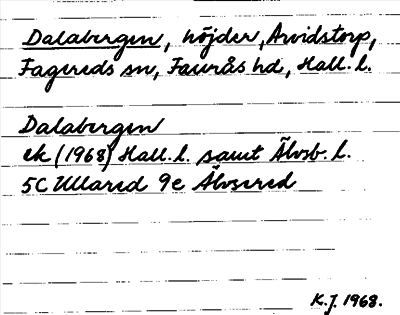 Dalabergen, höjder, Arvidstorp,
Fagereds sn, Faurås hd, Hall. l.
Dalabergen
ek (1968) Hall. l. samt Älvsb. l.
5C Ullared 9e Älvsered
K.J. 1968.